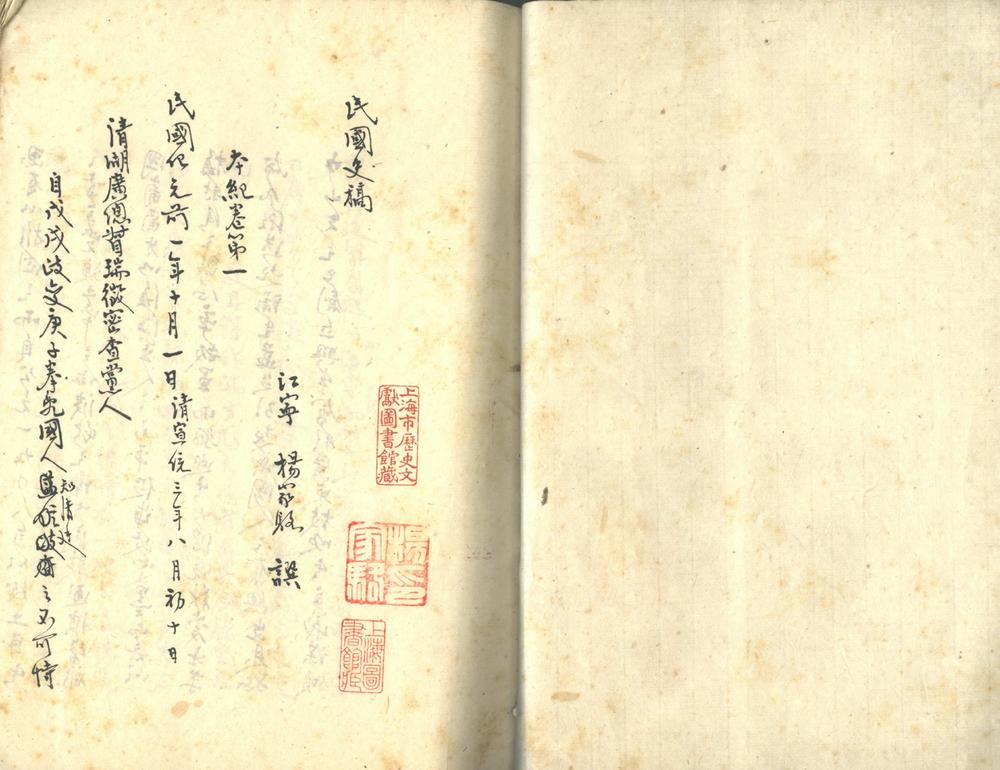 民國史稿
本紀卷第一
江寧 楊家駱 譔
民國紀元前一年十月一日清宣統三年八月初十日
清湖廣總督瑞澂密查黨人
自戊戌政變庚子拳亂國人益知清廷之不可恃
上海市歷史文
獻圖書館藏
楊印
家駱
上海圖
書館藏